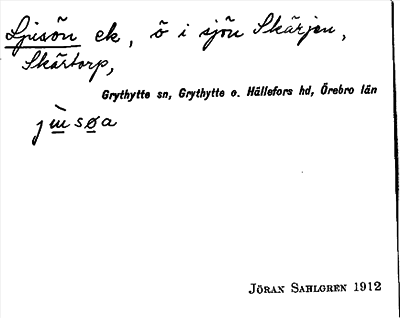 Ljusön ek, ö i sjön Skärjen,
Skärtorp,
Grythytte sn, Grythytte o. Hällefors hd, Örebro län
Jöran Sahlgren 1912